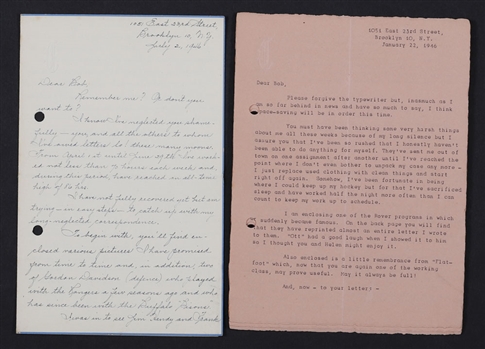 East 23rd Street,
Brooklyn 10, N.Y.
July 2, 1946
Dear Bob,
Remember me? Or don't you
want to?
I know I've neglected you shame-
fully – you, and all the others to whom
I've owed letters
for these many moons.
From
until June 29th
hours each week and,
during this period, have reached an all-time
high of
I have not fully recovered yet but am
trying
to catch up with my
long-neglected correspondence.
To begin with, you'll find en-
closed various pictures I have promised
from time to time and, in addition, two
of Gordon Davidson (defense) who played
with the Rangers a few seasons ago and who
has since been with the Buffalo Bisons.
I was in to see
and Frank
East 23rd Street,
Brooklyn 10, N.Y.
January 22, 1946
Dear Bob,
Please forgive the typewriter but, inasmuch as I
am so far behind in news and have so much to say, I think
space-saving will be in order this time.
You must have been thinking some very harsh things
about me all these weeks because of my long silence, but I
assure you that I've been so rushed that I honestly haven't
been able to do anything for myself. They've sent me out of
town on one assignment after another until I've reached the
point where I don't even bother to unpack my
any more -
I just replace used clothing with clean things and start
right off again. Somehow, I've been fortunate in being
where I could keep up my hockey but for that I've sacrificed
sleep and have worked half the night more often than I can
count to keep my work up to schedule.
I am enclosing one of the Rover programs in which
I suddenly became famous. On the back page you will find
that they have reprinted almost an entire letter I wrote
to them. "Ott" had a good laugh when I showed it to him
so I thought you and
might enjoy it.
Also enclosed is a little remembrance from "Flat-
foot" which, now that you are again one of the working
class, may prove useful. May it always be full!
And, now - to your letter: -